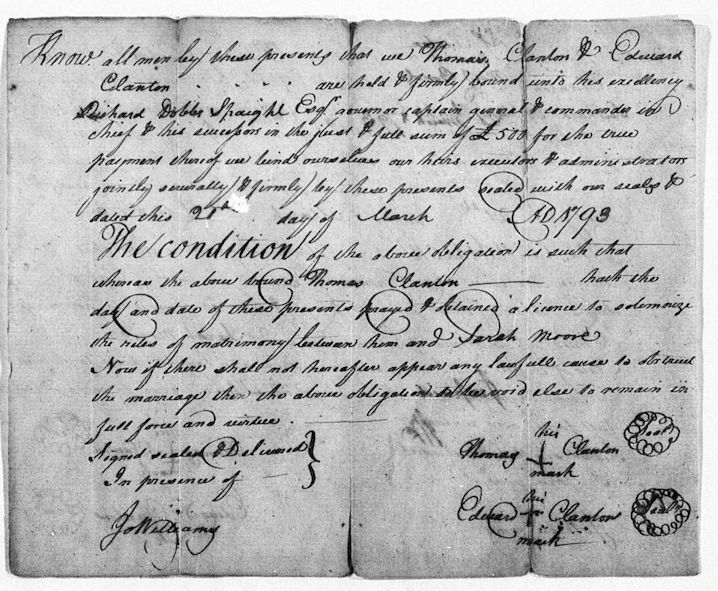 Know all men by these presents that we Thomas Clanton & Edward
Clanton are held & firmly bound unto his excellency
Richard Dobbs Spaight Esqr. governor captain general & commander in
chief & his successors in the just & full sum of £500 for the true
payment thereof we bind ourselves our heirs executors & administrators
jointly severally & firmly by these presents sealed with our seals &
dated this day of March AD 1793
The condition of the above obligation is such that
whereas the above bound Thomas Clanton hath the
day and date of these presents prayed & obtained a licence to solemnize
the rites of matrimony between him and Sarah Moore
Now if there shall not hereafter appear any lawfull cause to obstruct
the marriage then the above obligation to be void else to remain in
full force and virtue.
Signed sealed & Delivered
In presence of
Jo Williams
his
Thomas + Clanton Seal
mark
his
Edward + Clanton Seal
mark